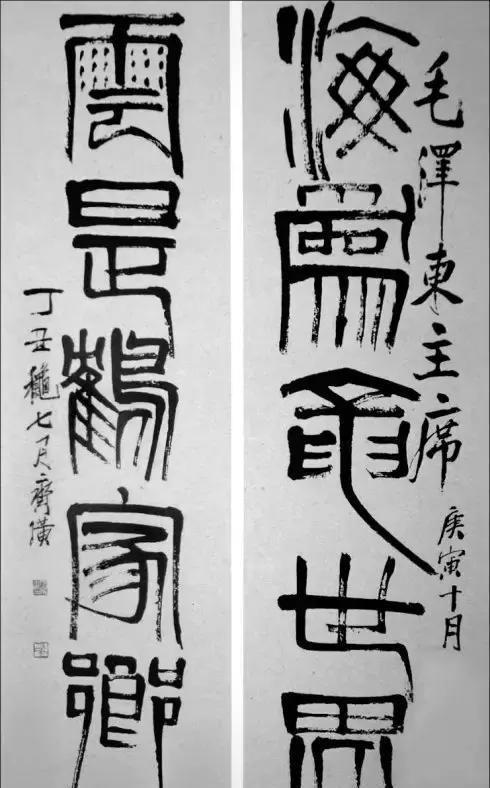 毛澤東主席
庚寅十月
海為龜世界
雲是鶴家鄉
丁丑龝七月齊璜